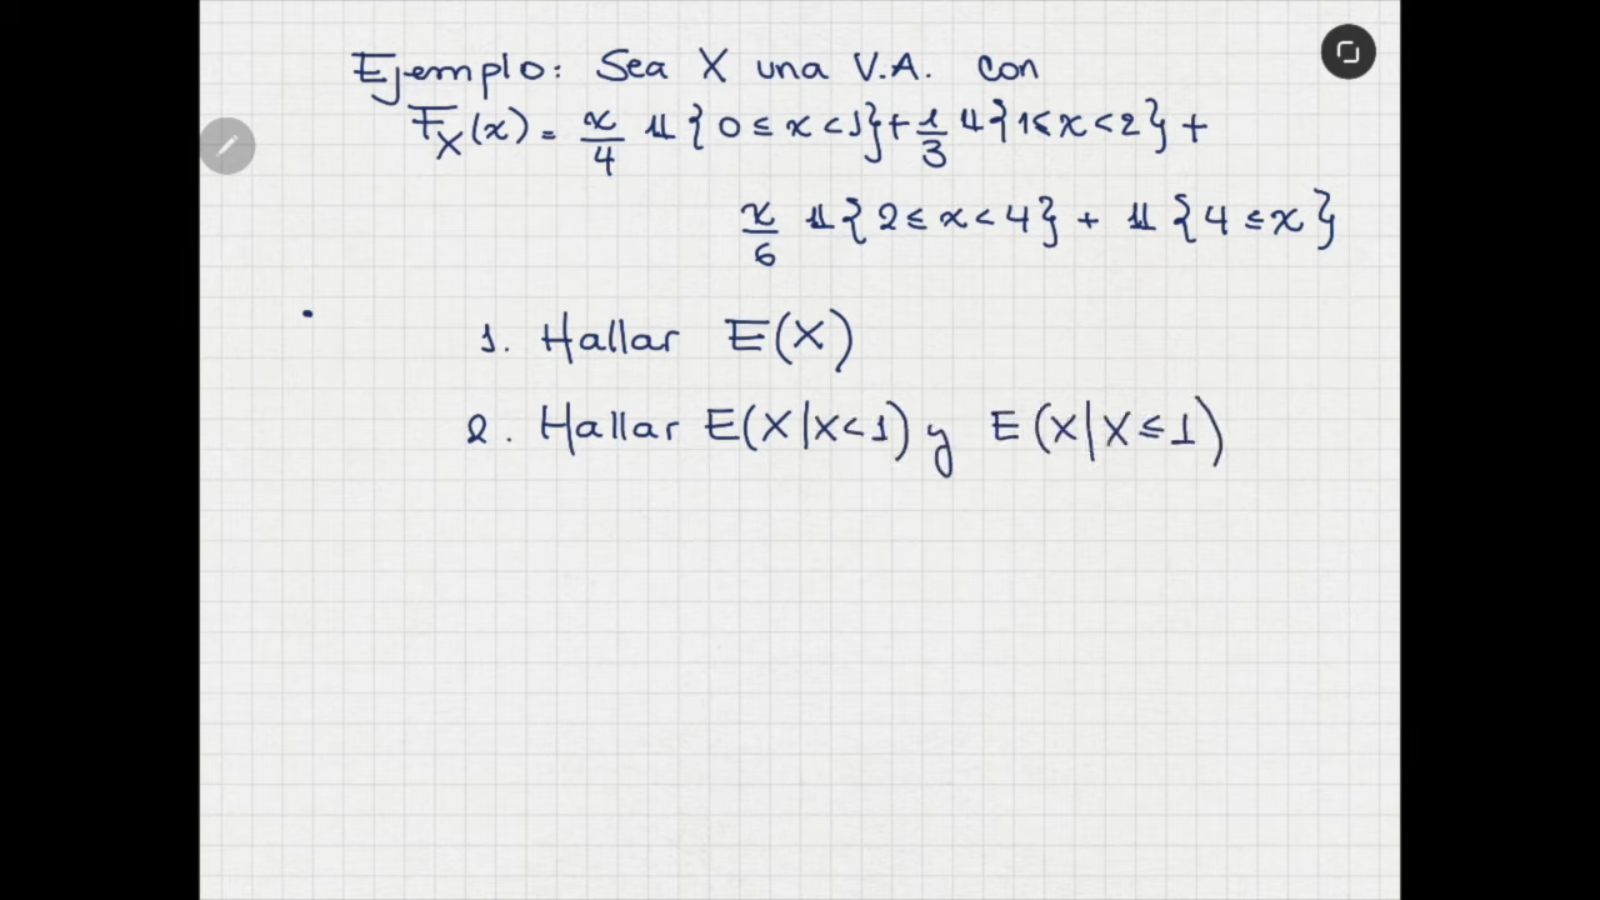 Ejemplo: Sea X una V.A. con
F_X(x) = x/4 𝟙{0 ≤ x < 1} + 1/3 𝟙{1 ≤ x < 2} +
x/6 𝟙{2 ≤ x < 4} + 𝟙{4 ≤ x}
1. Hallar E(X)
2. Hallar E(X|X<1) y E(X|X≤1)